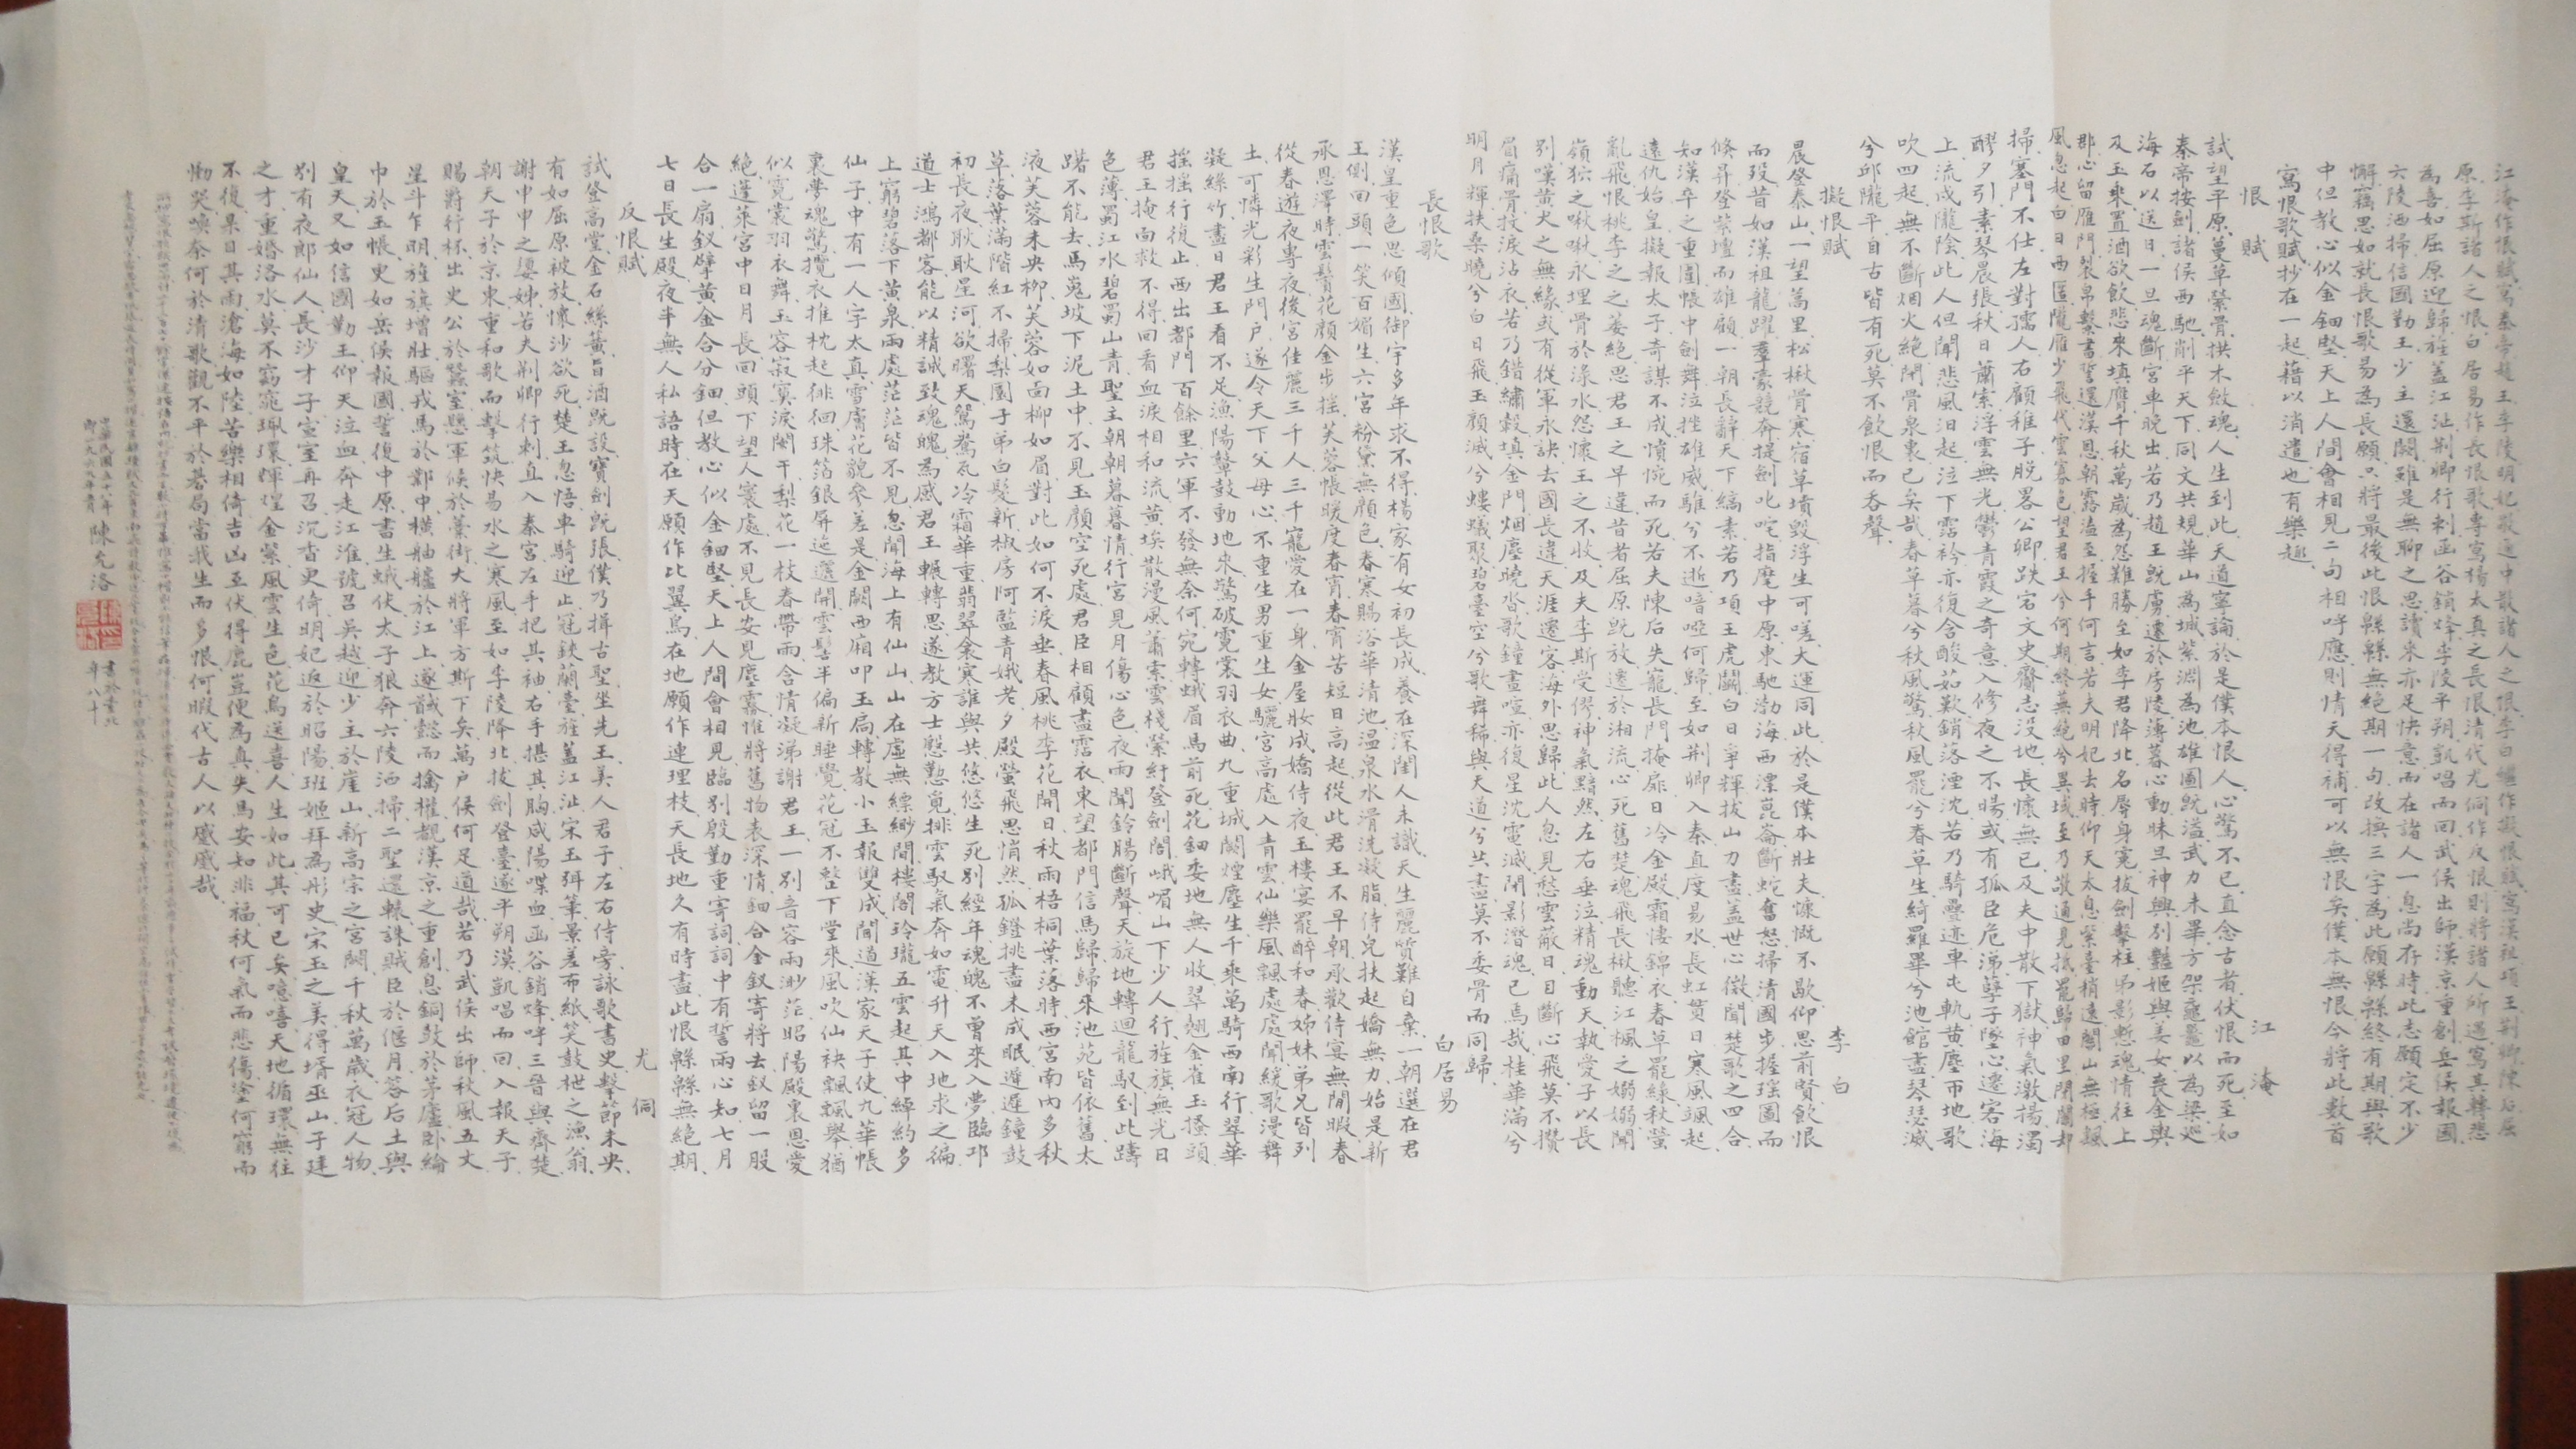 江淹作恨賦寫秦帝趙王李陵明妃敬通中散諸人之恨李白繼作擬恨賦寫漢祖項王荊卿陳后屈
原李斯諸人之恨白居易作長恨歌專寫楊太真之長恨清代尤侗作反恨則將諸人所遇寫其轉悲
為喜如屈原迎歸旌蓋江沚荊卿行刺函谷銷烽李陵平朔凱唱而回武侯出師漢京重創岳侯報國
六陵洒掃信國勤王少主還闕雖是無聊之思讀來亦足快意而在諸人一息尚存時此志願定不少
懈竊思如就長恨歌易為長願只將最後此恨緜緜無絕期一句改換三字為此願緜緜終有期與歌
中但教心似金鈿堅天上人間會相見二句相呼應則情天得補可以無恨矣僕本無恨今將此数首
寫恨歌賦抄在一起藉以消遣也有樂趣
恨賦 江淹
試望平原蔓草縈骨拱木斂魂人生到此天道寧論於是僕本恨人心驚不已直念古者伏恨而死至如
秦帝按劍諸侯西馳削平天下同文共規華山為城紫淵為池雄圖既溢武力未畢方架黿鼉以為梁巡
海右以送日一旦魂斷宮車晚出若乃趙王既虜遷於房陵薄暮心動昧旦神興別豔姬與美女喪金輿
及玉乘置酒欲飲悲來填膺千秋萬歲為怨難勝至如李君降北名辱身寃拔劍擊柱弔影慙魂情往上
郡心留雁門裂帛繫書誓還漢恩朝露溘至握手何言若夫明妃去時仰天太息紫臺稍遠關山無極飆
風忽起白日西匿隴雁少飛代雲寡色望君王兮何期終蕪絕兮異域至乃敬通見抵罷歸田里閉關却
掃塞門不仕左對孺人右顧稚子脫畧公卿跌宕文史齎志沒地長懷無已及夫中散下獄神氣激揚濁
醪夕引素琴晨張秋日蕭索浮雲無光鬱青霞之奇意入修夜之不暘或有孤臣危涕孽子墜心遷客海
上流戍隴陰此人但聞悲風汩起泣下霑衿亦復含酸茹歎銷落湮沈若乃騎疊迹車屯軌黄塵帀地歌
吹四起無不斷烟火絕閉骨泉裏已矣哉春草暮兮秋風驚秋風罷兮春草生綺羅畢兮池館盡琴瑟滅
兮邱隴平自古皆有死莫不飲恨而吞聲
擬恨賦 李白
晨登泰山一望蒿里松楸骨寒宿草墳毀浮生可嗟大運同此於是僕本壯夫慷慨不歇仰思前賢飲恨
而歿昔如漢祖龍躍羣豪競奔提劍叱咤指麾中原東馳渤海西漂崑崙斷蛇奮怒掃清國步握瑤圖而
倏昇登紫壇而雄顧一朝長辭天下縞素若乃項王虎鬭白日爭輝拔山力盡蓋世心徵聞楚歌之四合
知漢卒之重圍帳中劍舞泣挫雄威騅兮不逝喑啞何歸至如荊卿入秦直度易水長虹貫日寒風颯起
遠仇始皇擬報太子奇謀不成憤惋而死若夫陳后失寵長門掩扉日冷金殿霜悽錦衣春草罷綠秋螢
亂飛恨桃李之之萎絕思君王之早違昔者屈原既放遷於湘流心死舊楚魂飛長楸聽江楓之嫋嫋聞
嶺狖之啾啾永埋骨於淥水怨懷王之不收及夫李斯受僇神氣黯然左右垂泣精魂動天執愛子以長
別嘆黃犬之無緣或有從軍永訣去國長違天涯遷客海外思歸此人忽見愁雲蔽日目斷心飛莫不攢
眉痛骨抆淚沾衣若乃錯繡轂填金門烟塵曉沓歌鐘晝喧亦復星沈電滅閉影潛魂已焉哉桂華滿兮
明月輝扶桑曉兮白日飛玉顏滅兮螻蟻聚碧臺空兮歌舞稀與天道兮共盡莫不委骨而同歸
長恨歌 白居易
漢皇重色思傾國御宇多年求不得楊家有女初長成養在深閨人未識天生麗質難自棄一朝選在君
王側回頭一笑百媚生六宮粉黛無顏色春寒賜浴華清池溫泉水滑洗凝脂侍兒扶起嬌無力始是新
承恩澤時雲鬢花顏金步搖芙蓉帳暖度春宵春宵苦短日高起從此君王不早朝承歡侍宴無閒暇春
從春遊夜專夜後宮佳麗三千人三千寵愛在一身金屋妝成嬌侍夜玉樓宴罷醉和春姊妹弟兄皆列
土可憐光彩生門戶遂令天下父母心不重生男重生女驪宮高處入青雲仙樂風飄處處聞緩歌漫舞
凝絲竹盡日君王看不足漁陽鼙鼓動地來驚破霓裳羽衣曲九重城闕煙塵生千乘萬騎西南行翠華
搖搖行復止西出都門百餘里六軍不發無奈何宛轉蛾眉馬前死花鈿委地無人收翠翹金雀玉搔頭
君王掩面救不得回看血淚相和流黃埃散漫風蕭索雲棧縈紆登劍閣峨嵋山下少人行旌旗無光日
色薄蜀江水碧蜀山青聖主朝朝暮暮情行宮見月傷心色夜雨聞鈴腸斷聲天旋地轉迴龍馭到此躊
躇不能去馬嵬坡下泥土中不見玉顏空死處君臣相顧盡霑衣東望都門信馬歸歸來池苑皆依舊太
液芙蓉未央柳芙蓉如面柳如眉對此如何不淚垂春風桃李花開日秋雨梧桐葉落時西宮南內多秋
草落葉滿階紅不掃梨園子弟白髮新椒房阿監青娥老夕殿螢飛思悄然孤鐙挑盡未成眠遲遲鐘鼓
初長夜耿耿星河欲曙天鴛鴦瓦冷霜華重翡翠衾寒誰與共悠悠生死別經年魂魄不曾來入夢臨邛
道士鴻都客能以精誠致魂魄為感君王輾轉思遂教方士慇懃覓排雲馭氣奔如電升天入地求之徧
上窮碧落下黃泉兩處茫茫皆不見忽聞海上有仙山山在虛無縹緲間樓閣玲瓏五雲起其中綽約多
仙子中有一人字太真雪膚花貌參差是金闕西廂叩玉扃轉教小玉報雙成聞道漢家天子使九華帳
裏夢魂驚攬衣推枕起徘徊珠箔銀屏迤邐開雲髻半偏新睡覺花冠不整下堂來風吹仙袂飄飄舉猶
似霓裳羽衣舞玉容寂寞淚闌干梨花一枝春帶雨含情凝涕謝君王一別音容兩渺茫昭陽殿裏恩愛
絕蓬萊宮中日月長回頭下望人寰處不見長安見塵霧惟將舊物表深情鈿合金釵寄將去釵留一股
合一扇釵擘黃金合分鈿但教心似金鈿堅天上人間會相見臨別殷勤重寄詞詞中有誓兩心知七月
七日長生殿夜半無人私語時在天願作比翼鳥在地願作連理枝天長地久有時盡此恨緜緜無絕期
反恨賦 尤侗
試登高堂金石絲簧旨酒既設寶劍既張僕乃揖古聖坐先王美人君子左右侍旁詠歌書史擊節未央
有如屈原被放懷沙欲死楚王忽悟車騎迎止冠鋏蘭臺旌蓋江沚宋玉弭筆景差布紙笑鼓枻之漁翁
謝申申之嬃姊若夫荊卿行刺直入秦宮左手把其袖右手揕其胸咸陽喋血函谷銷烽呼三晉與齊楚
朝天子於京東重和歌而擊筑快易水之寒風至如李陵降北拔劍登臺遂平朔漠凱唱而回入報天子
賜爵行杯出史公於蠶室懸軍候於藁街大將軍方斯下矣萬户侯何足道哉若乃武侯出師秋風五丈
星斗乍明旌旗增壯驅戎馬於鄴中橫舳艫於江上遂馘懿而擒權覩漢京之重創息銅鼓於茅廬卧綸
巾於玉帳史如岳侯報國誓復中原書生蛾伏太子狼奔六陵洒掃二聖還轅誅賊臣於偃月答后土與
皇天又如信國勤王仰天泣血奔走江淮號召吳越迎少主於崖山新高宗之宮闕千秋萬歲衣冠人物
別有夜郎仙人長沙才子宣室再召沉香史倚明妃返於昭陽班姬拜為彤史宋玉之美得壻巫山子建
之才重婚洛水莫不窈窕珮環輝煌金紫風雲生色花鳥送喜人生如此其可已矣噫嘻天地循環無往
不復果日其雨滄海如陸苦樂相倚吉凶互伏得鹿豈便為真失馬安知非福秋何氣而悲傷塗何窮而
慟哭嘆奈何於清歌觀不平於碁局當我生而多恨何暇代古人以蹙蹙哉
中華民國五十八年
即一九六九年 陳允洛 書於臺北
年八十